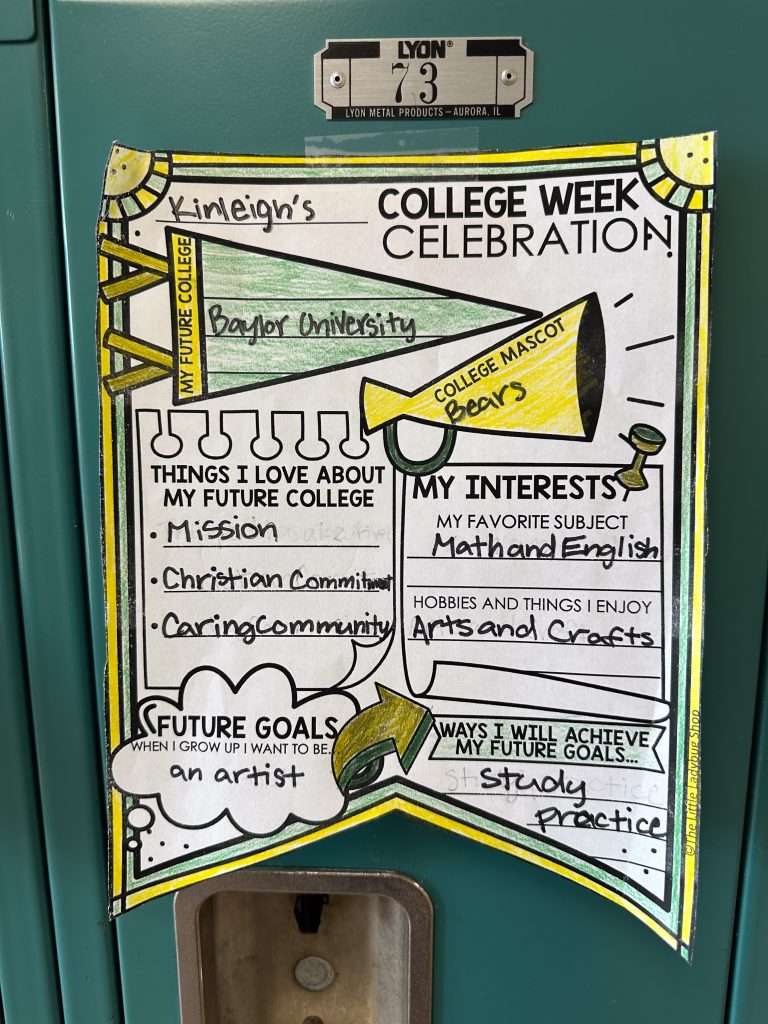 LYON®
73
LYON METAL PRODUCTS — AURORA, IL
Kinleigh's
COLLEGE WEEK
CELEBRATION!
MY FUTURE COLLEGE
Baylor University
COLLEGE MASCOT
Bears
THINGS I LOVE ABOUT
MY FUTURE COLLEGE
• Mission
• Christian Commitment
• Caring Community
MY INTERESTS
MY FAVORITE SUBJECT
Math and English
HOBBIES AND THINGS I ENJOY
Arts and Crafts
FUTURE GOALS
WHEN I GROW UP I WANT TO BE...
an artist
WAYS I WILL ACHIEVE
MY FUTURE GOALS...
study
practice
©The Little Ladybug Shop